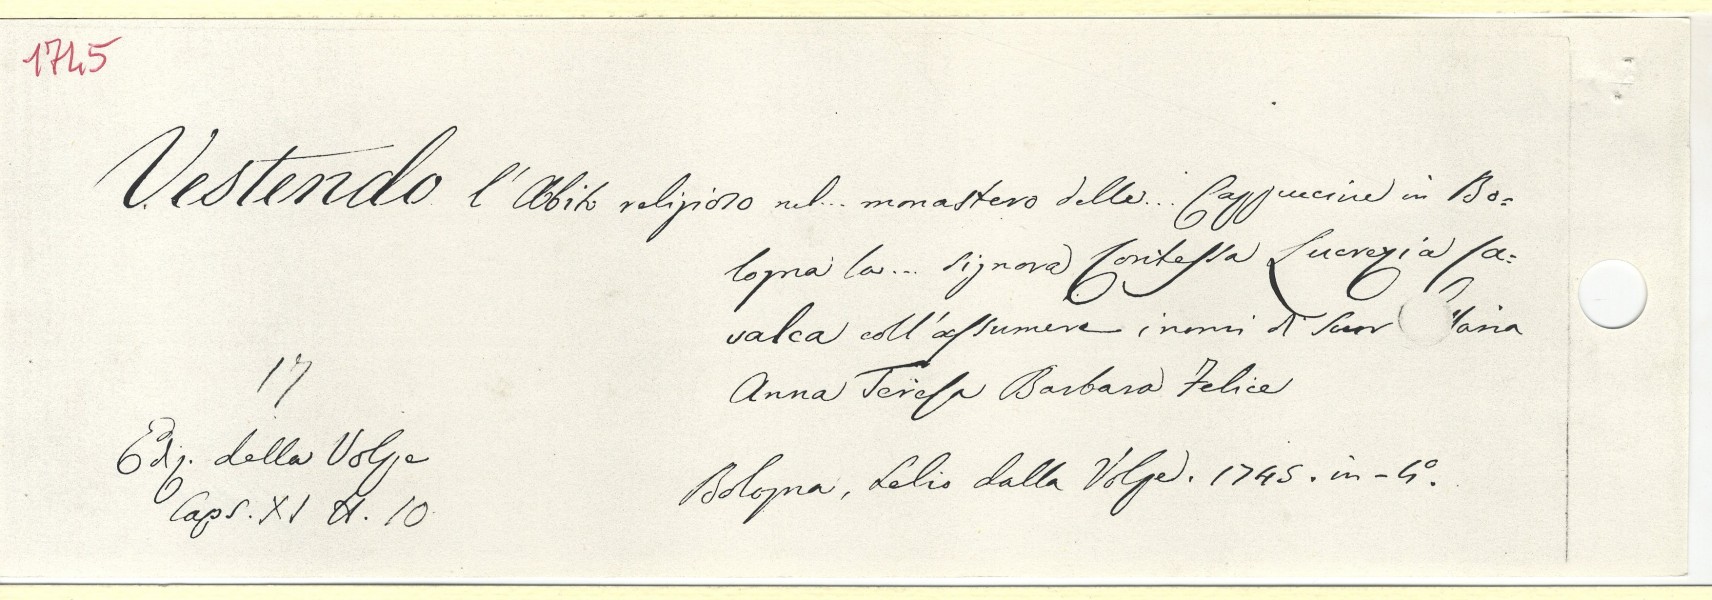 1745
Vestendo l'Abito religioso nel... monastero delle... Cappuccine in Bo=
logna la... signora Contessa Lucrezia Ca=
valca coll'assumere i nomi di Suor Maria
Anna Teresa Barbara Felice
17
Ediz. della Volpe
Caps. XI N. 10
Bologna, Lelio dalla Volpe. 1745. in-4°.